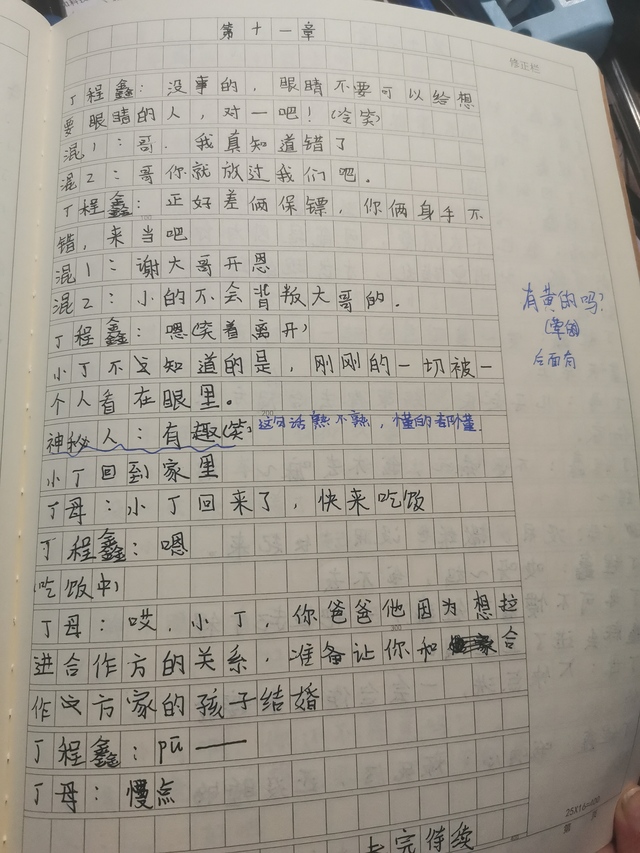 第十一章
修正栏
丁程鑫：没事的，眼睛不要可以给想
要眼睛的人，对一吧！（冷笑）
混1：哥．我真知道错了
混2：哥你就放过我们吧。
丁程鑫：正好差俩保镖，你俩身手不
错，来当吧
混1：谢大哥开恩
混2：小的不会背叛大哥的．
丁程鑫：嗯（笑着离开）
小丁不知道的是，刚刚的一切被一
个人看在眼里。
神秘人：有趣（笑）这句话熟不熟，懂的都懂
小丁回到家里
丁母：小丁回来了，快来吃饭
丁程鑫：嗯
（吃饭中）
丁母：哎．小丁，你爸爸他因为想拉
进合作方的关系，准备让你和合
作方家的孩子结婚
丁程鑫：pū——
丁母：慢点
未完待续
有黄的吗？
后面有
25X16=400
第 页